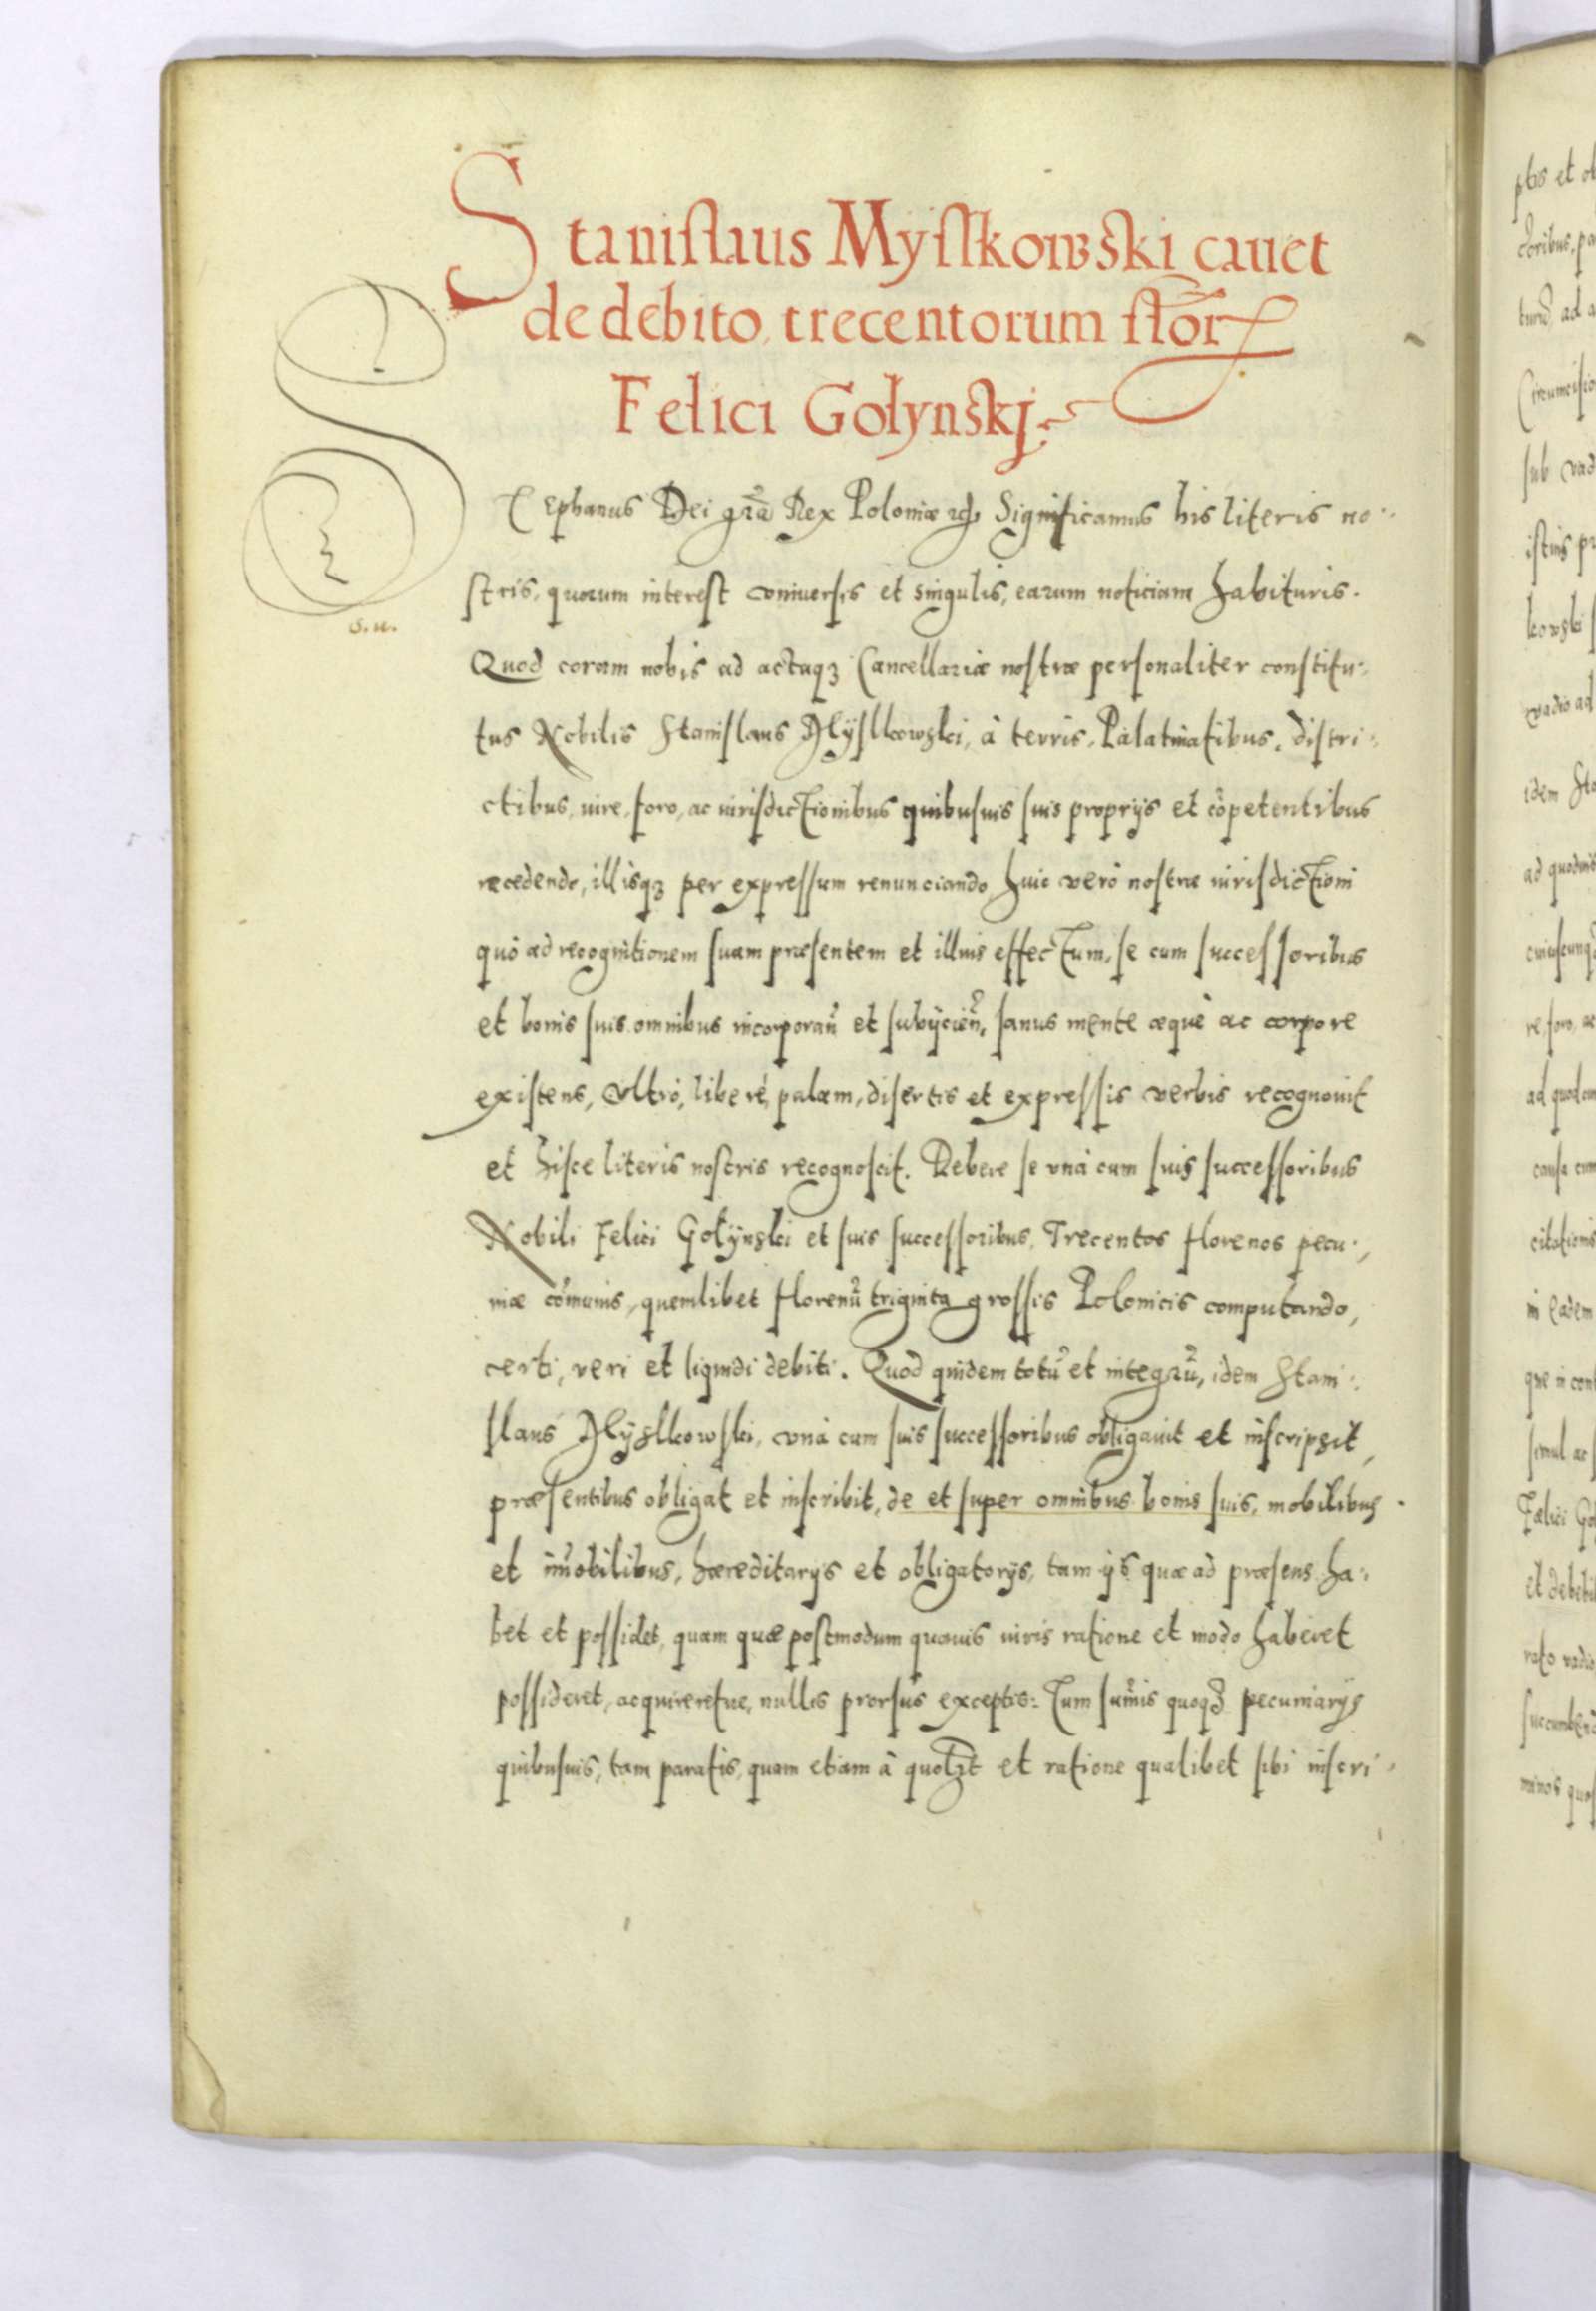 Stanislaus Myslkowski cauet
de debito trecentorum flor
Felici Gołynskj
Stephanus Dei gr̃a Rex Poloniæ etc. Significamus his literis no-
stris, quorum interest vniuersis et singulis, earum noticiam habituris.
Quod coram nobis ad actaq3 Cancellariæ nostræ personaliter constitu-
tus Nobilis Stanislaus Mÿslkowski, à terris, Palatinatibus, distri-
ctibus, iure, foro, ac iurisdictionibus quibusuis suis proprijs et cõpetentibus
recedendo, illisq3 per expressum renunciando, huic verò nostræ iurisdictioni
quò ad recognitionem suam præsentem et illius effectum, se cum successoribus
et bonis suis omnibus incorporañ et subijcieñ, sanus mente æquè ac corpore
existens, vltrò, liberè, palam, disertis et expressis verbis recognouit
et hisce literis nostris recognoscit. Debere se vnà cum suis successoribus
Nobili Felici Gołÿnski et suis successoribus, Trecentos florenos pecu-
niæ cõmunis, quemlibet florenũ triginta grossis Polonicis computando,
certi, veri et liquidi debiti. Quod quidem totũ et integrũ, idem Stani-
slaus Mÿslkowski, vnà cum suis successoribus obligauit et inscripsit,
præsentibus obligat et inscribit, de et super omnibus bonis suis, mobilibus
et im̃obilibus, hæreditarijs et obligatorijs, tam ijs quæ ad præsens ha-
bet et possidet, quam quæ postmodum quouis iuris ratione et modo haberet
possideret, acquireretue, nullis prorsus exceptis: Tum sum̃is quoq3 pecuniarijs
quibusuis, tam paratis, quam etiam à quolzt et ratione qualibet sibi inscri-
S. u.